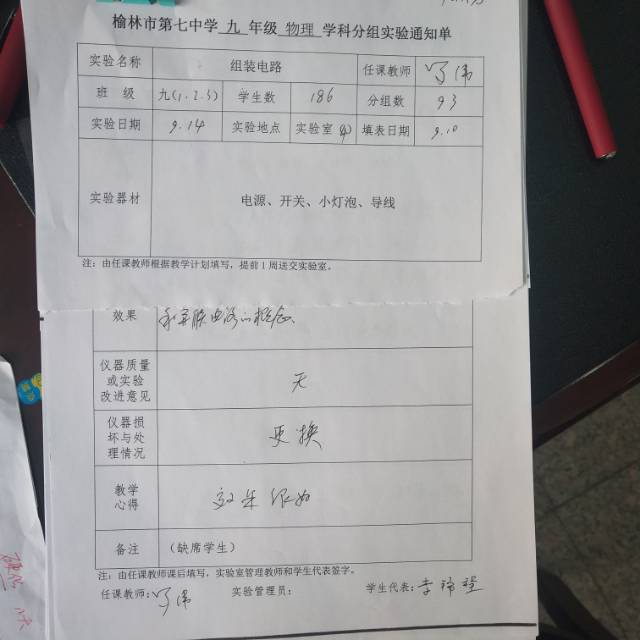 榆林市第七中学 九 年级 物理 学科分组实验通知单
实验名称 组装电路 任课教师
班 级 九(1.2.3) 学生数 186 分组数 93
实验日期 9.14 实验地点 实验室 填表日期 9.10
实验器材 电源、开关、小灯泡、导线
注：由任课教师根据教学计划填写，提前1周送交实验室。
效果 和并联电路的概念
仪器质量
或实验
改进意见 无
仪器损
坏与处
理情况 更换
教学
心得 效果很好
备注 (缺席学生)
注：由任课教师课后填写，实验室管理教师和学生代表签字。
任课教师: 实验管理员: 学生代表: